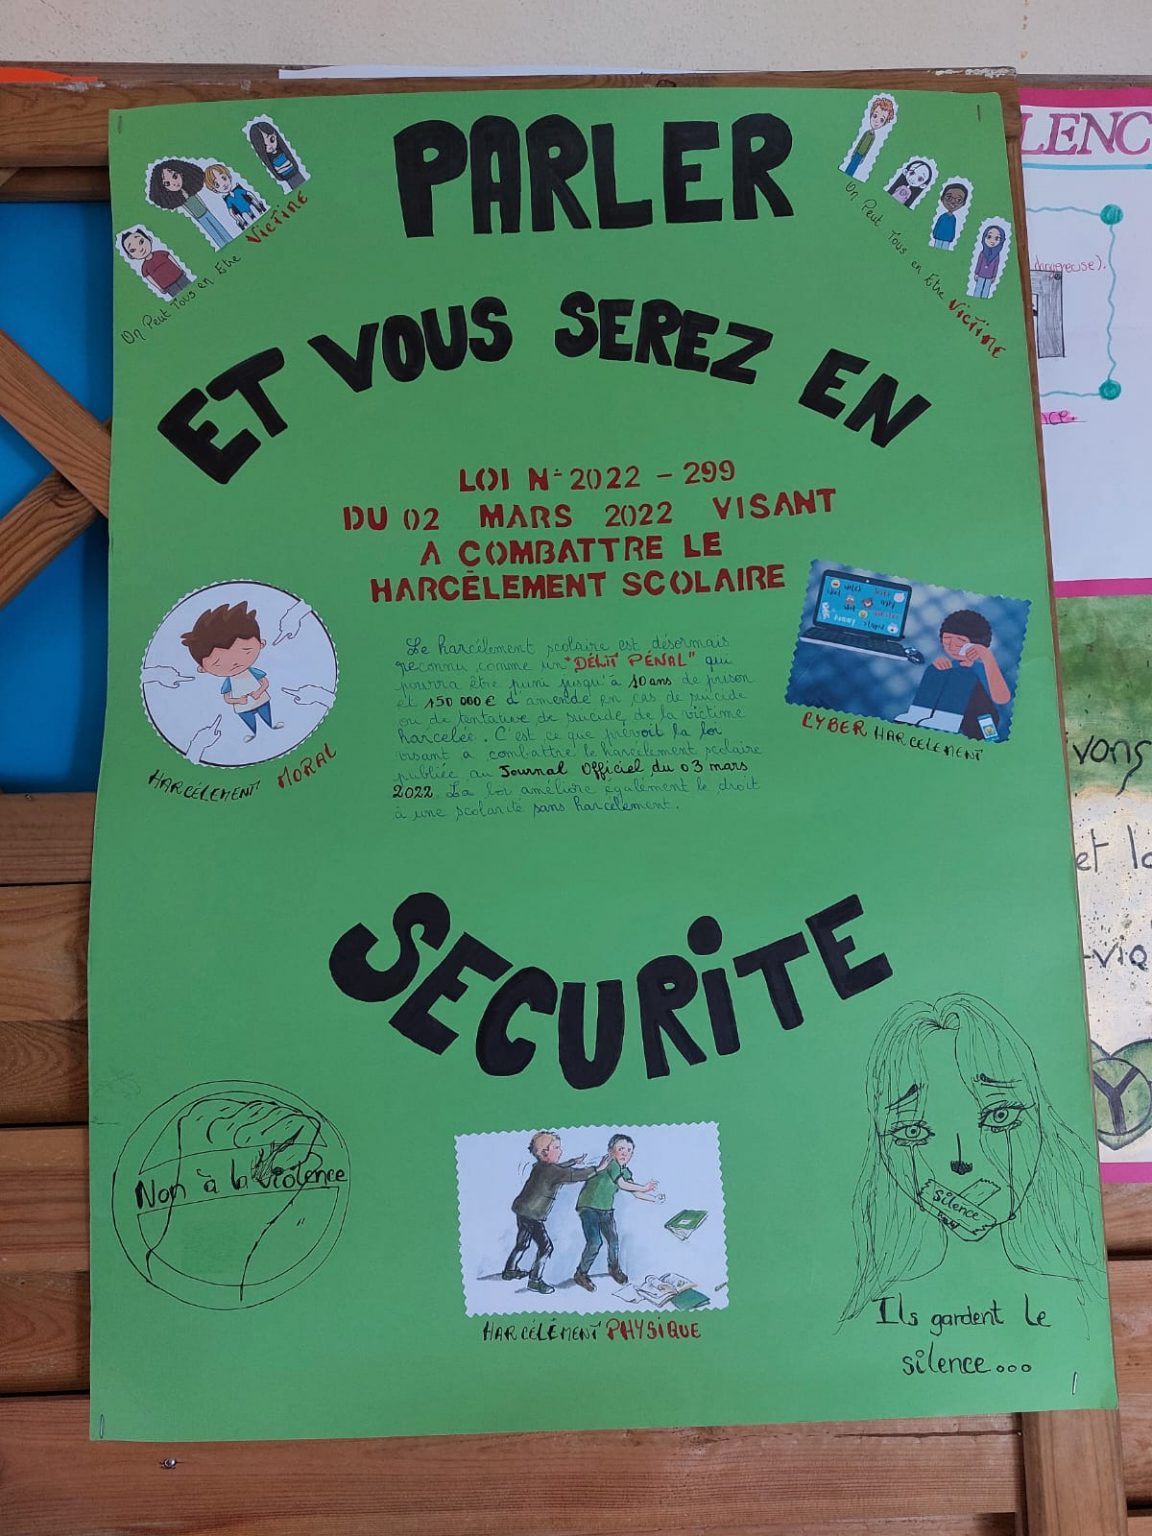 PARLER
On Peut Tous en Être VICTIME
On Peut Tous en Être VICTIME
ET VOUS SEREZ EN
LOI N° 2022 - 299
DU 02 MARS 2022 VISANT
A COMBATTRE LE
HARCÈLEMENT SCOLAIRE
Le harcèlement scolaire est désormais
reconnu comme un "DÉLIT PÉNAL" qui
pourra être puni jusqu'à 10 ans de prison
et 150 000 € d'amende en cas de suicide
ou de tentative de suicide, de la victime
harcelée. C'est ce que prévoit la loi
visant a combattre le harcèlement scolaire
publiée au Journal Officiel du 03 mars
2022. La loi améliore également le droit
à une scolarité sans harcèlement.
HARCÉLEMENT MORAL
CYBER HARCELEMENT
SECURiTE
Non à la violence
HARCÉLÉMENT PHYSiQUE
Silence
Ils gardent le
silence...
LENC
dangereuse).
nce.
vons
et la
Y